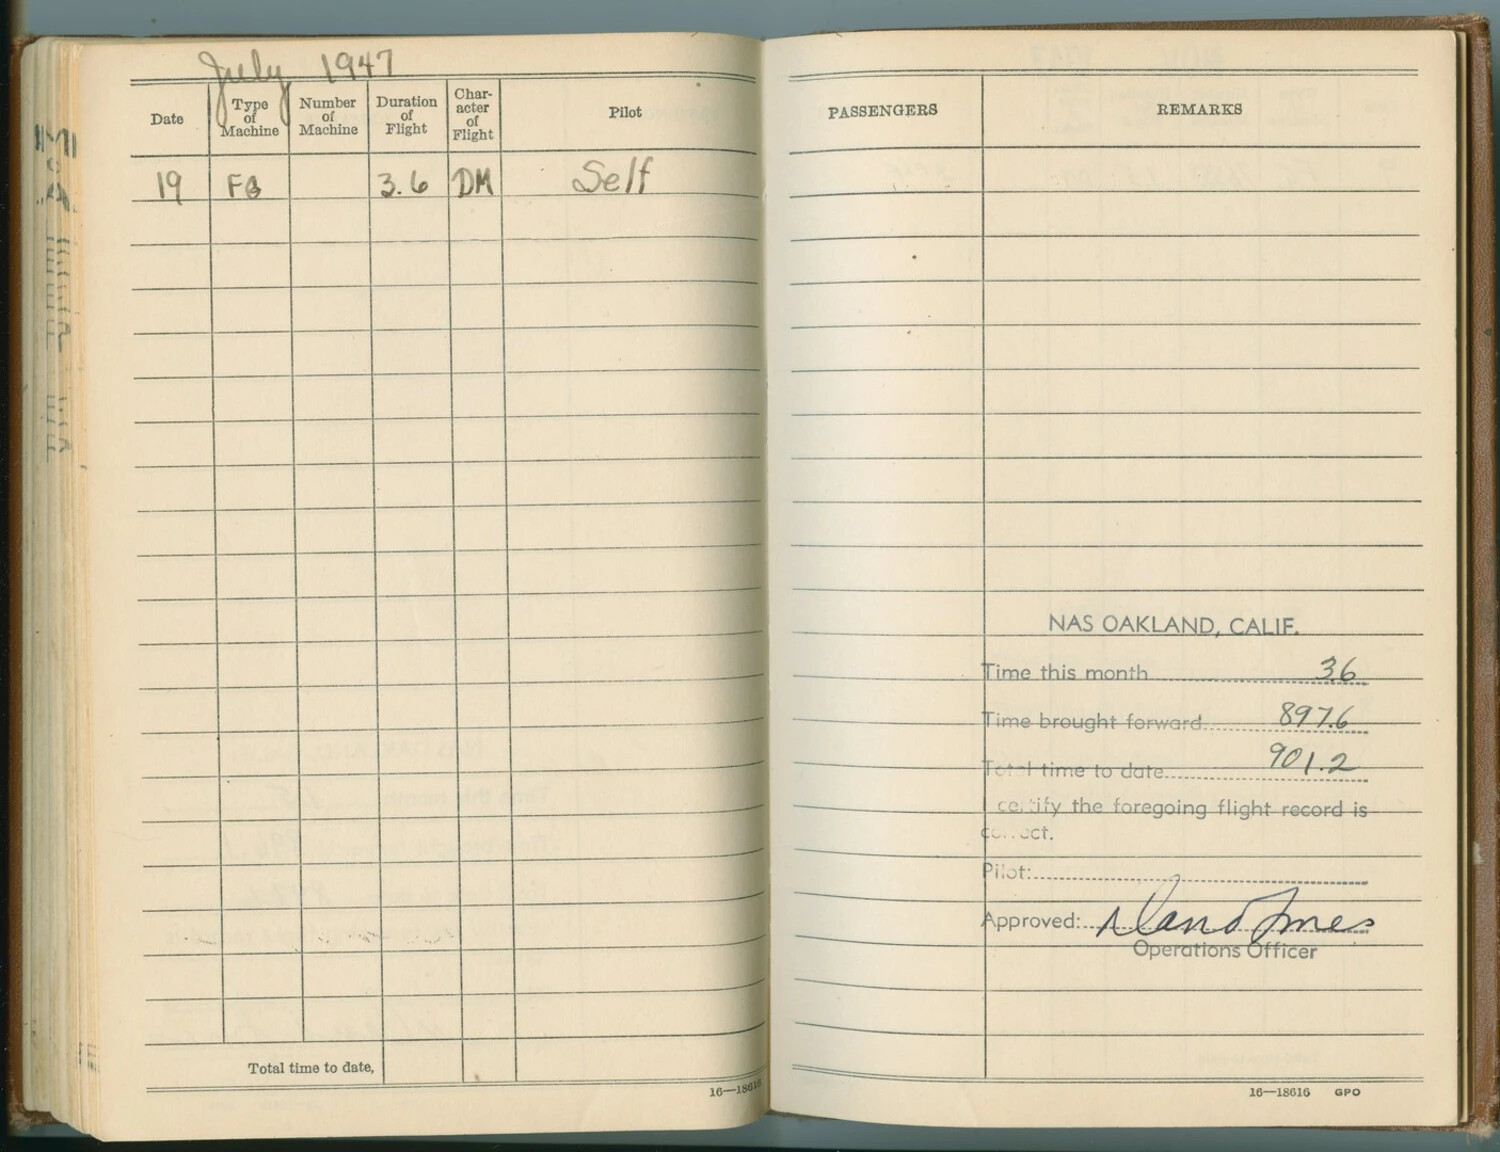 July 1947
Date Type of Machine Number of Machine Duration of Flight Char- acter of Flight Pilot PASSENGERS REMARKS
19 FG 3.6 DM Self
NAS OAKLAND, CALIF.
Time this month 3.6
Time brought forward 897.6
Total time to date 901.2
I certify the foregoing flight record is
correct.
Pilot:
Approved:
Operations Officer
Total time to date,
16—18616
16—18616 GPO